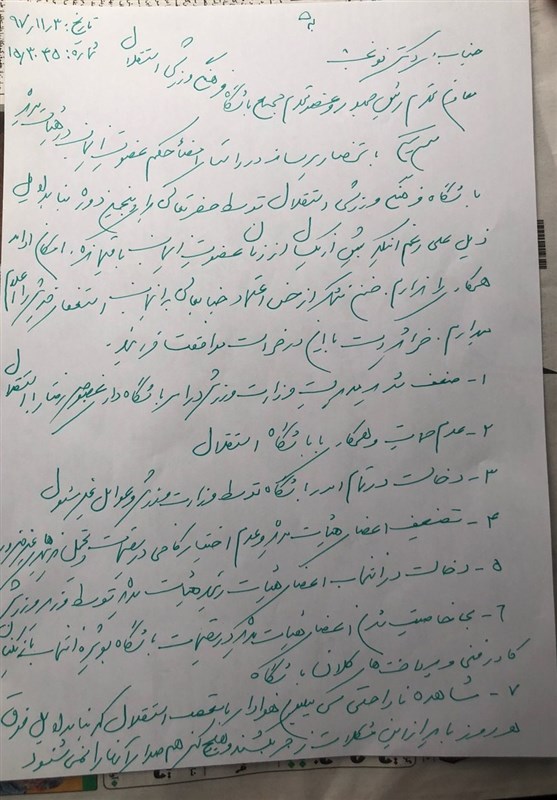 تاریخ: ۹۷/۱۱/۳۰
شماره: ۱۵/۳۰۳۵
جناب آقای دکتر نوبخت
معاون محترم رئیس جمهور و عضو محترم مجمع باشگاه فرهنگی ورزشی استقلال
سلام علیکم با احترام به استحضار می‌رساند در راستای امضاء حکم عضویت اینجانب در هیأت مدیره
باشگاه فرهنگی ورزشی استقلال توسط حضرتعالی و بنا به دلایل
ذیل علی رغم اینکه بیش از یکسال از زمان عضویت اینجانب باقیمانده، امکان ادامه
همکاری را ندارم. ضمن تشکر از حسن اعتماد جنابعالی به اینجانب استعفای خویش را اعلام
میدارم. خواهشمند است با این درخواست موافقت فرمائید.
۱- ضعف شدید مدیریت وزارت ورزش در امر باشگاه داری بخصوص در رابطه با استقلال
۲- عدم حمایت و همکاری با باشگاه استقلال
۳- دخالت در تمام امور باشگاه توسط وزارت ورزش و عوامل غیر مسئول
۴- تضعیف اعضای هیأت مدیره و عدم اختیار کافی در تصمیمات و تحمیل
۵- دخالت در انتخاب اعضای هیأت رئیسه هیأت مدیره توسط وزیر ورزش
۶- بی خاصیت شدن اعضای هیأت مدیره در تصمیمات باشگاه بویژه انتخاب بازیکنان
کادر فنی و سیاست های کلان باشگاه
۷- مشاهده ناراحتی سی میلیون هوادار با تعصب استقلال که بنا به دلایل فوق
هر روز با این مشکلات زجر میکشند و هیچ کس هم صدای آنها را نمی شنود